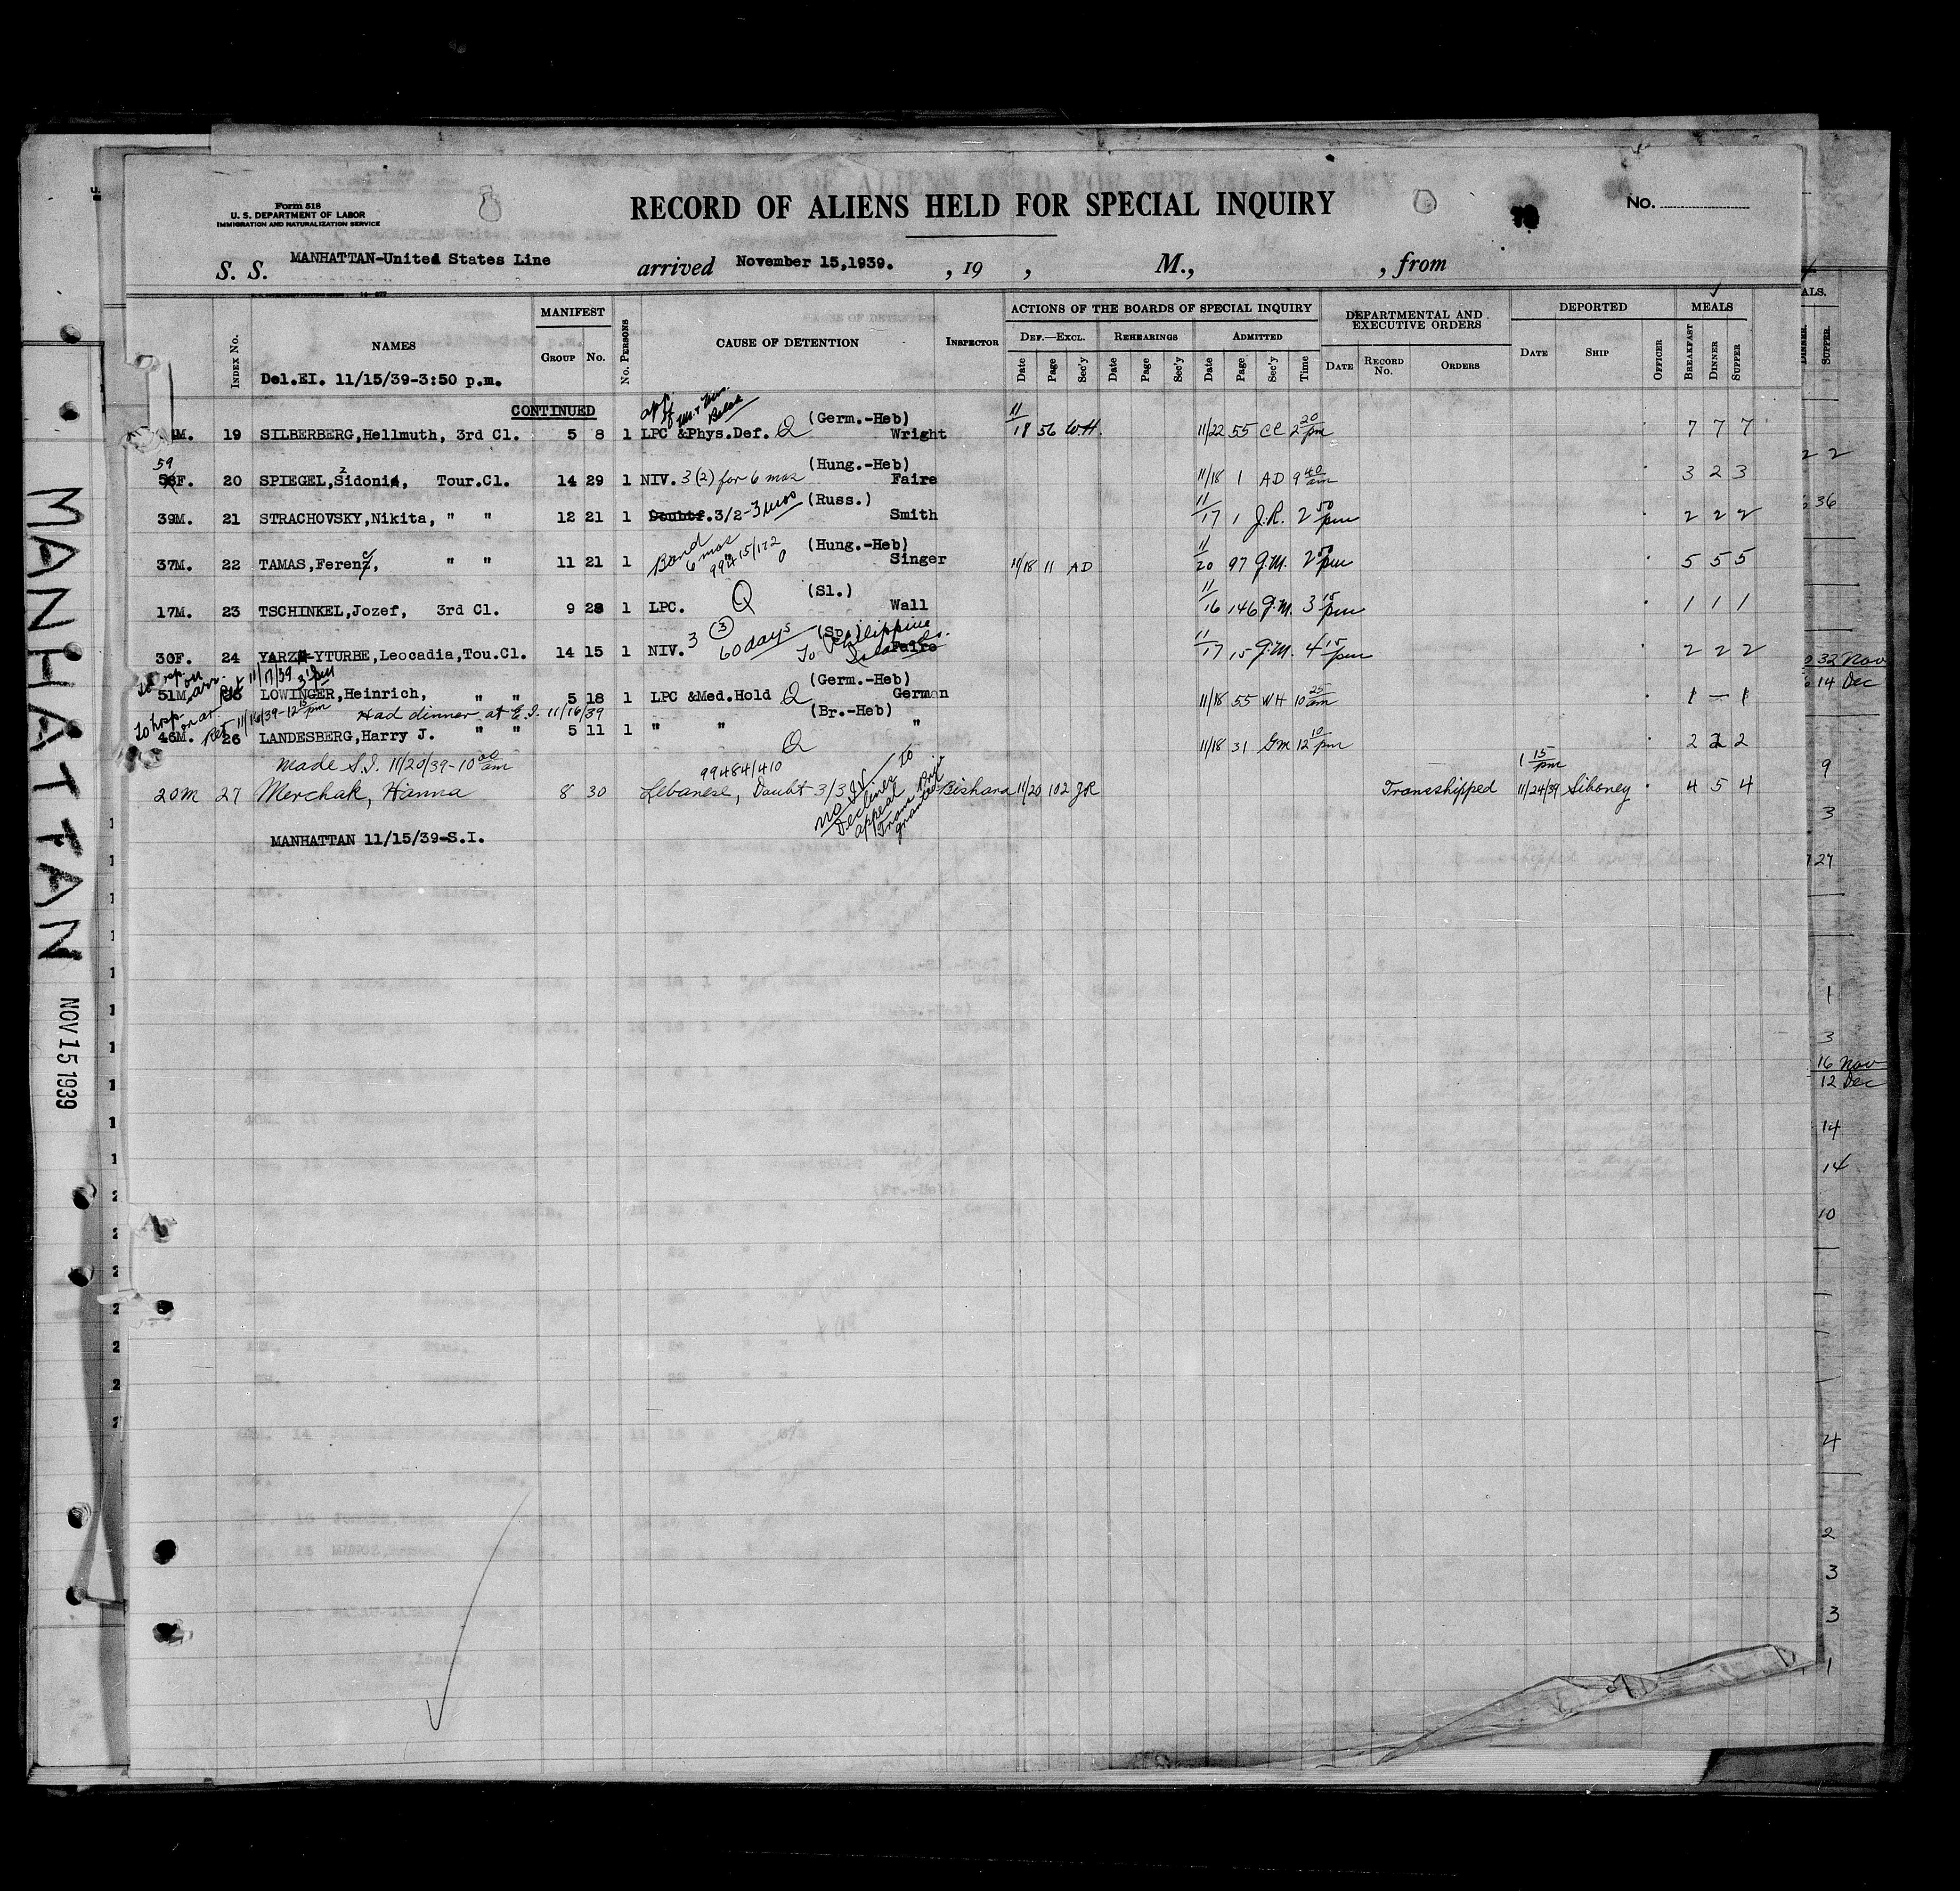 Form 518
U. S. DEPARTMENT OF LABOR
IMMIGRATION AND NATURALIZATION SERVICE
RECORD OF ALIENS HELD FOR SPECIAL INQUIRY
No.
S. S. MANHATTAN-United States Line arrived November 15,1939. , 19 , M., , from
Index No. NAMES MANIFEST Group No. No. Persons CAUSE OF DETENTION Inspector
ACTIONS OF THE BOARDS OF SPECIAL INQUIRY
Def.—Excl. Rehearings Admitted
Date Page Sec'y Date Page Sec'y Date Page Sec'y Time
DEPARTMENTAL AND EXECUTIVE ORDERS
Date Record No. Orders
DEPORTED
Date Ship Officer
MEALS
Breakfast Dinner Supper
Del.EI. 11/15/39-3:50 p.m.
CONTINUED
(Germ.-Heb)
M. 19 SILBERBERG,Hellmuth, 3rd Cl. 5 8 1 LPC &Phys.Def. Q Wright 11/18 56 W.H. 11/22 55 CC 2 20 pm 7 7 7
(Hung.-Heb)
59 F. 20 SPIEGEL,Sidonie, Tour.Cl. 14 29 1 NIV. 3(2) for 6 mos Faire 11/18 1 AD 9 40 am 3 2 3
(Russ.)
39M. 21 STRACHOVSKY,Nikita, " " 12 21 1 Doubtf. 3/2-3 mos Smith 11/17 1 J.R. 2 50 pm 2 2 2
(Hung.-Heb)
37M. 22 TAMAS,Ferenc, " " 11 21 1 Bond 6 mos 99415/172 Singer 11/18 11 AD 11/20 97 J.M. 2 50 pm 5 5 5
(Sl.)
17M. 23 TSCHINKEL,Jozef, 3rd Cl. 9 28 1 LPC. Q Wall 11/16 146 J.M. 3 15 pm 1 1 1
(Sp.)
30F. 24 YARZA-YTURBE,Leocadia,Tou.Cl. 14 15 1 NIV. 3 (3) 60 days To Philippine Islands. Faire 11/17 15 J.M. 4 15 pm 2 2 2
To hosp. on arr. Ret 11/17/39 3 pm
(Germ.-Heb)
51M. 25 LOWINGER,Heinrich, " " 5 18 1 LPC &Med.Hold Q German 11/18 55 WH 10 25 am 1 — 1
To hosp. on ar Ret 11/16/39-12 15 pm Had dinner at E.I. 11/16/39
(Br.-Heb)
46M. 26 LANDESBERG,Harry J. " " 5 11 1 " " Q " 11/18 31 GM 12 10 pm 2 2 2
Made S.I. 11/20/39-10 00 am
99484/410
20M 27 Merchak, Hanna 8 30 Lebanese, Doubt 3/3 Declines to appeal Trans Priv granted Bishara 11/20 102 JR Transhipped 1 15 pm 11/24/39 Siboney 4 5 4
MANHATTAN 11/15/39-S.I.
MANHATTAN
NOV 15 1939
36
32 Nov
14 Dec
9
3
27
1
3
16 Nov
12 Dec
14
14
10
4
2
3
3
1